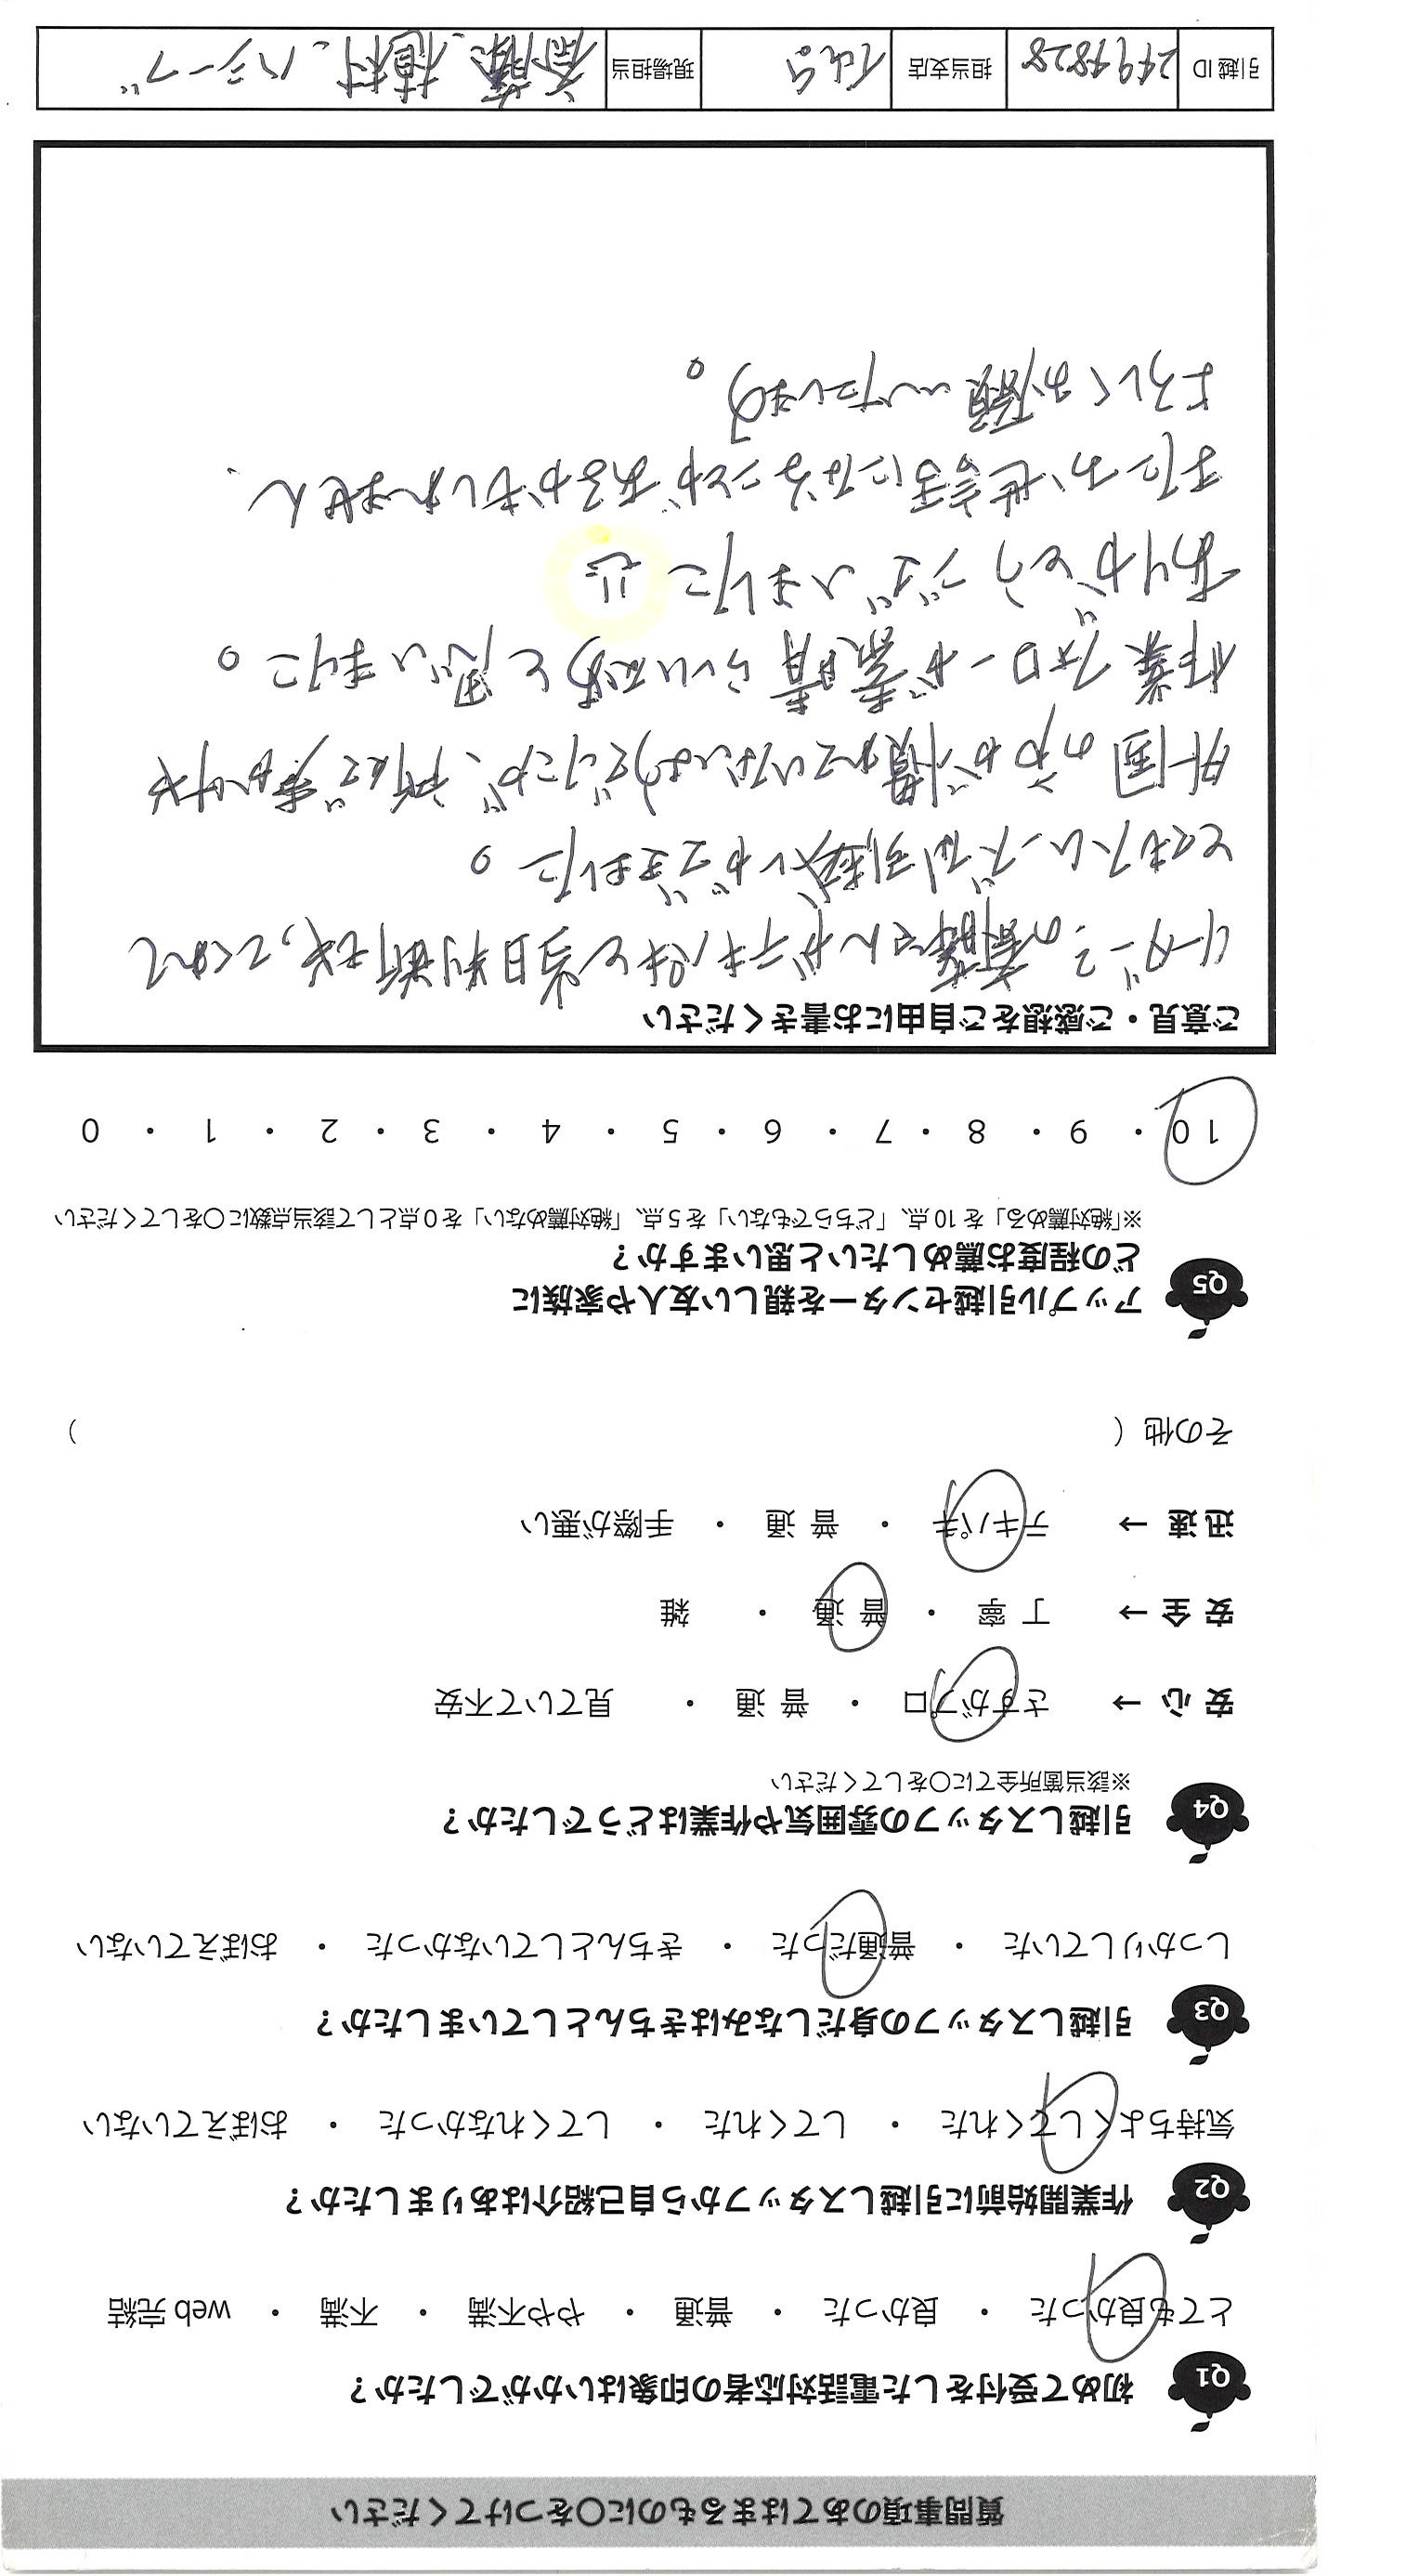 質問事項のあてはまるものに〇をつけてください
Q1 初めて受付をした電話対応者の印象はいかがでしたか？
とても良かった ・ 良かった ・ 普通 ・ やや不満 ・ 不満 ・ web 完結
Q2 作業開始前に引越しスタッフから自己紹介はありましたか？
気持ちよくしてくれた ・ してくれた ・ してくれなかった ・ おぼえていない
Q3 引越しスタッフの身だしなみはきちんとしていましたか？
しっかりしていた ・ 普通だった ・ きちんとしていなかった ・ おぼえていない
Q4 引越しスタッフの雰囲気や作業はどうでしたか？
※該当箇所全てに〇をしてください
安 心 → さすがプロ ・ 普 通 ・ 見ていて不安
安 全 → 丁 寧 ・ 普 通 ・ 雑
迅 速 → テキパキ ・ 普 通 ・ 手際が悪い
その他（ ）
Q5 アップル引越センターを親しい友人や家族に
どの程度お薦めしたいと思いますか？
※「絶対薦める」を 10 点、「どちらでもない」を 5 点、「絶対薦めない」を 0 点として該当点数に〇をしてください
10 ・ 9 ・ 8 ・ 7 ・ 6 ・ 5 ・ 4 ・ 3 ・ 2 ・ 1 ・ 0
ご意見・ご感想をご自由にお書きください
リーダーの斎藤さんがテキパキと当日判断もし、てくれて
とてもスムーズな引越しができました。
外国の方が慣れていないようでしたが、所々で声かけや
作業フォローが素晴らしいなあと思いました。
ありがとうございました
またお世話になることがあるかもしれません、
よろしくお願いいたします。
引越 ID 2494828 担当支店 現場担当 斎藤、植村、ハラーブ